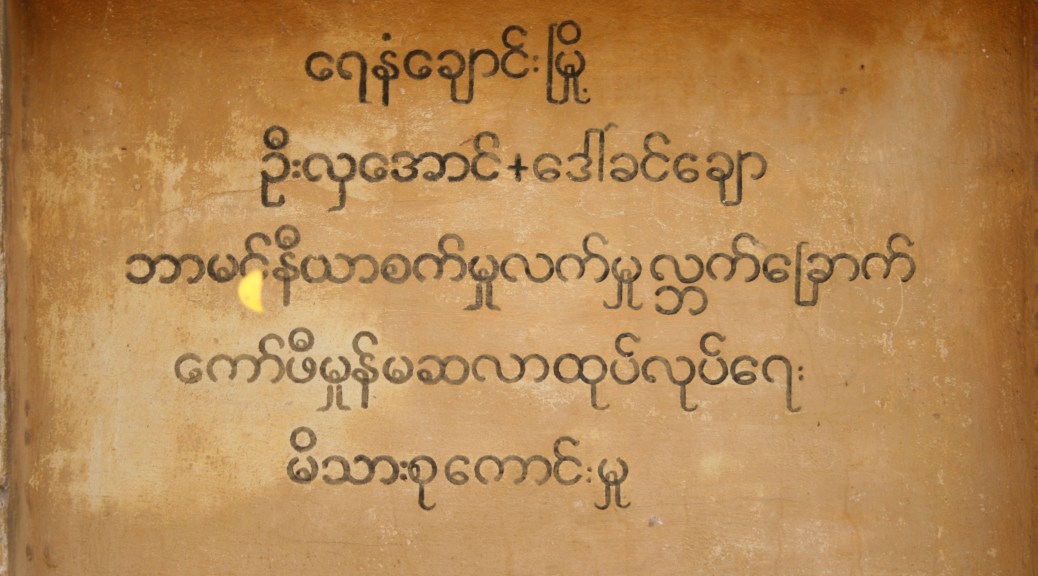 ရေနံချောင်းမြို့
ဦးလှအောင်+ဒေါ်ခင်ချော
ဘာမင်နီယာစက်မှုလက်မှုလ္ဘက်ခြောက်
ကော်ဖီမှုန်မဆလာထုပ်လုပ်ရေး
မိသားစုကောင်းမှု